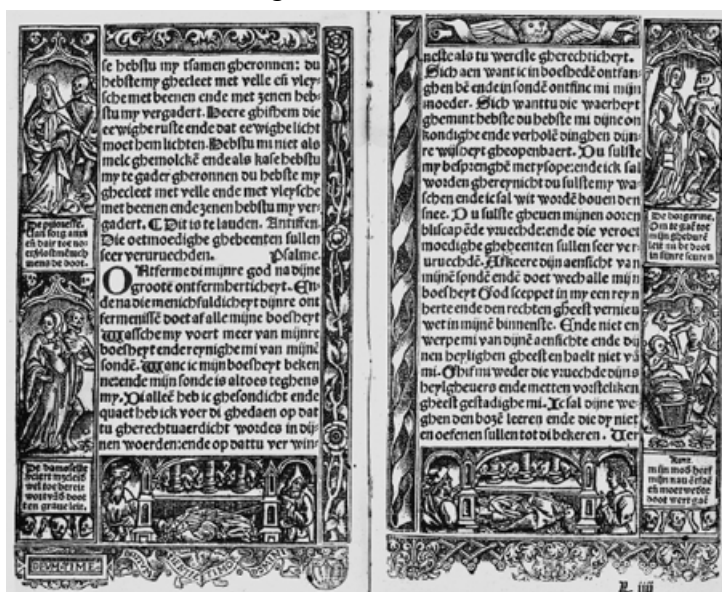 se hebstu my tsamen gheronnen: du
hebstemy ghecleet met velle eñ vley-
sche met beenen ende met zenen heb-
stu my vergadert. Heere ghifhem die
eewighe ruste ende dat eewighe licht
moet hem lichten. Hebstu mi niet als
melc ghemolckē ende als kase hebstu
my te gader gheronnen du hebste my
ghecleet met velle ende met vleysche
met beenen ende zenen hebstu my ver-
gadert. ⸿ Dit is te lauden. Antiffen.
Die oetmoedighe ghebeenten sullen
seer veruruechden. Psalme.
Ontferme di mijnre god na dijne
groote ontfermherticheyt. En-
de na die menichfuldicheyt dijnre ont
fermenisse doet af alle mijne boesheyt
Wassche my voert meer van mijnre
boesheyt ende reynighe mi van mijnē
sondē. Want ic mijn boesheyt beken
ne: ende mijn sonde is altoes teghens
my. Di alleē heb ic ghesondicht ende
quaet heb ick voer di ghedaen op dat
tu gherechtuaerdicht wordes in dij-
nen woerden: ende op dattu ver win-
De damoselle
wel toe bereit
DEVM·TIME
neste als tu wercste gherechticheyt.
Sich aen want ic in boeshedē ontfan-
ghen bē ende in sondē ontfinc mi mijn
moeder. Sich want tu die waerheyt
ghemint hebste du hebste mi dijne on
kondighe ende verholē dinghen dijn-
re wijsheyt gheopenbaert. Du sulste
my besprenghē met ysope: ende ick sal
worden ghereynicht du sulste my wa-
schen ende ic sal wit wordē bouen den
snee. Du sulste gheuen mijnen ooren
bliscap ēde vruechde: ende die veroet
moedighe ghebeenten sullen seer ver-
uruechdē. Afkeere dijn aensicht van
mijnē sondē endē doet wech alle mijn
boesheyt God sceppet in my een reyn
herte ende den rechten gheest vernieu
wet in mijnē binnenste. Ende niet en
werpe mi van dijnē aensichte ende dij
nen heylighen gheest en haelt niet vā
mi. Ghif mi weder die vruechde dijns
heylgheuers ende metten vorsteliken
gheest gestadighe mi. Ic sal dijne we-
ghen den bozē leeren ende die dy niet
en oefenen sullen tot di bekeren. Ver
De borgerine.
Om te gaē tot
mijn ghebure
leit nu de doot
in sijnre scuren